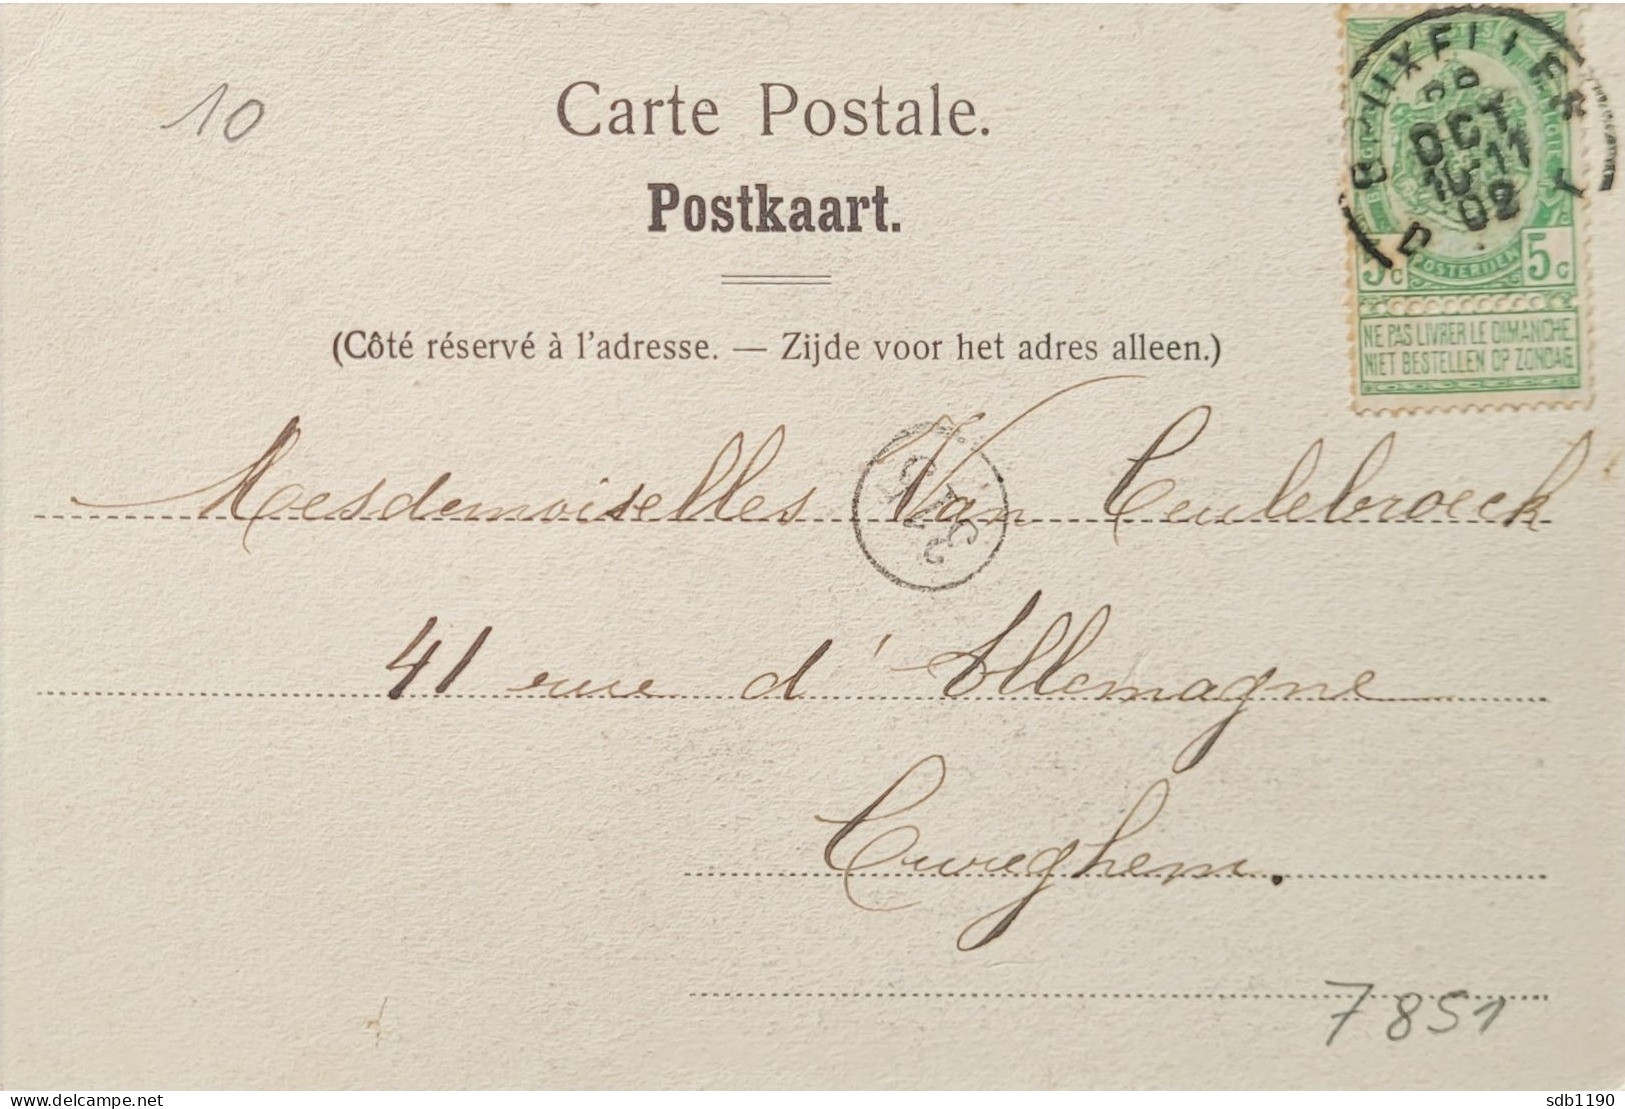 10
Carte Postale.
Postkaart.
BRUXELLES 1
OCT
10-11
02
5 c POSTERIJEN 5 c
NE PAS LIVRER LE DIMANCHE
NIET BESTELLEN OP ZONDAG
(Côté réservé à l'adresse. — Zijde voor het adres alleen.)
Mesdemoiselles Van Ceulebroeck
41 rue d'Allemagne
Cureghem.
7851
delcampe.net
sdb1190